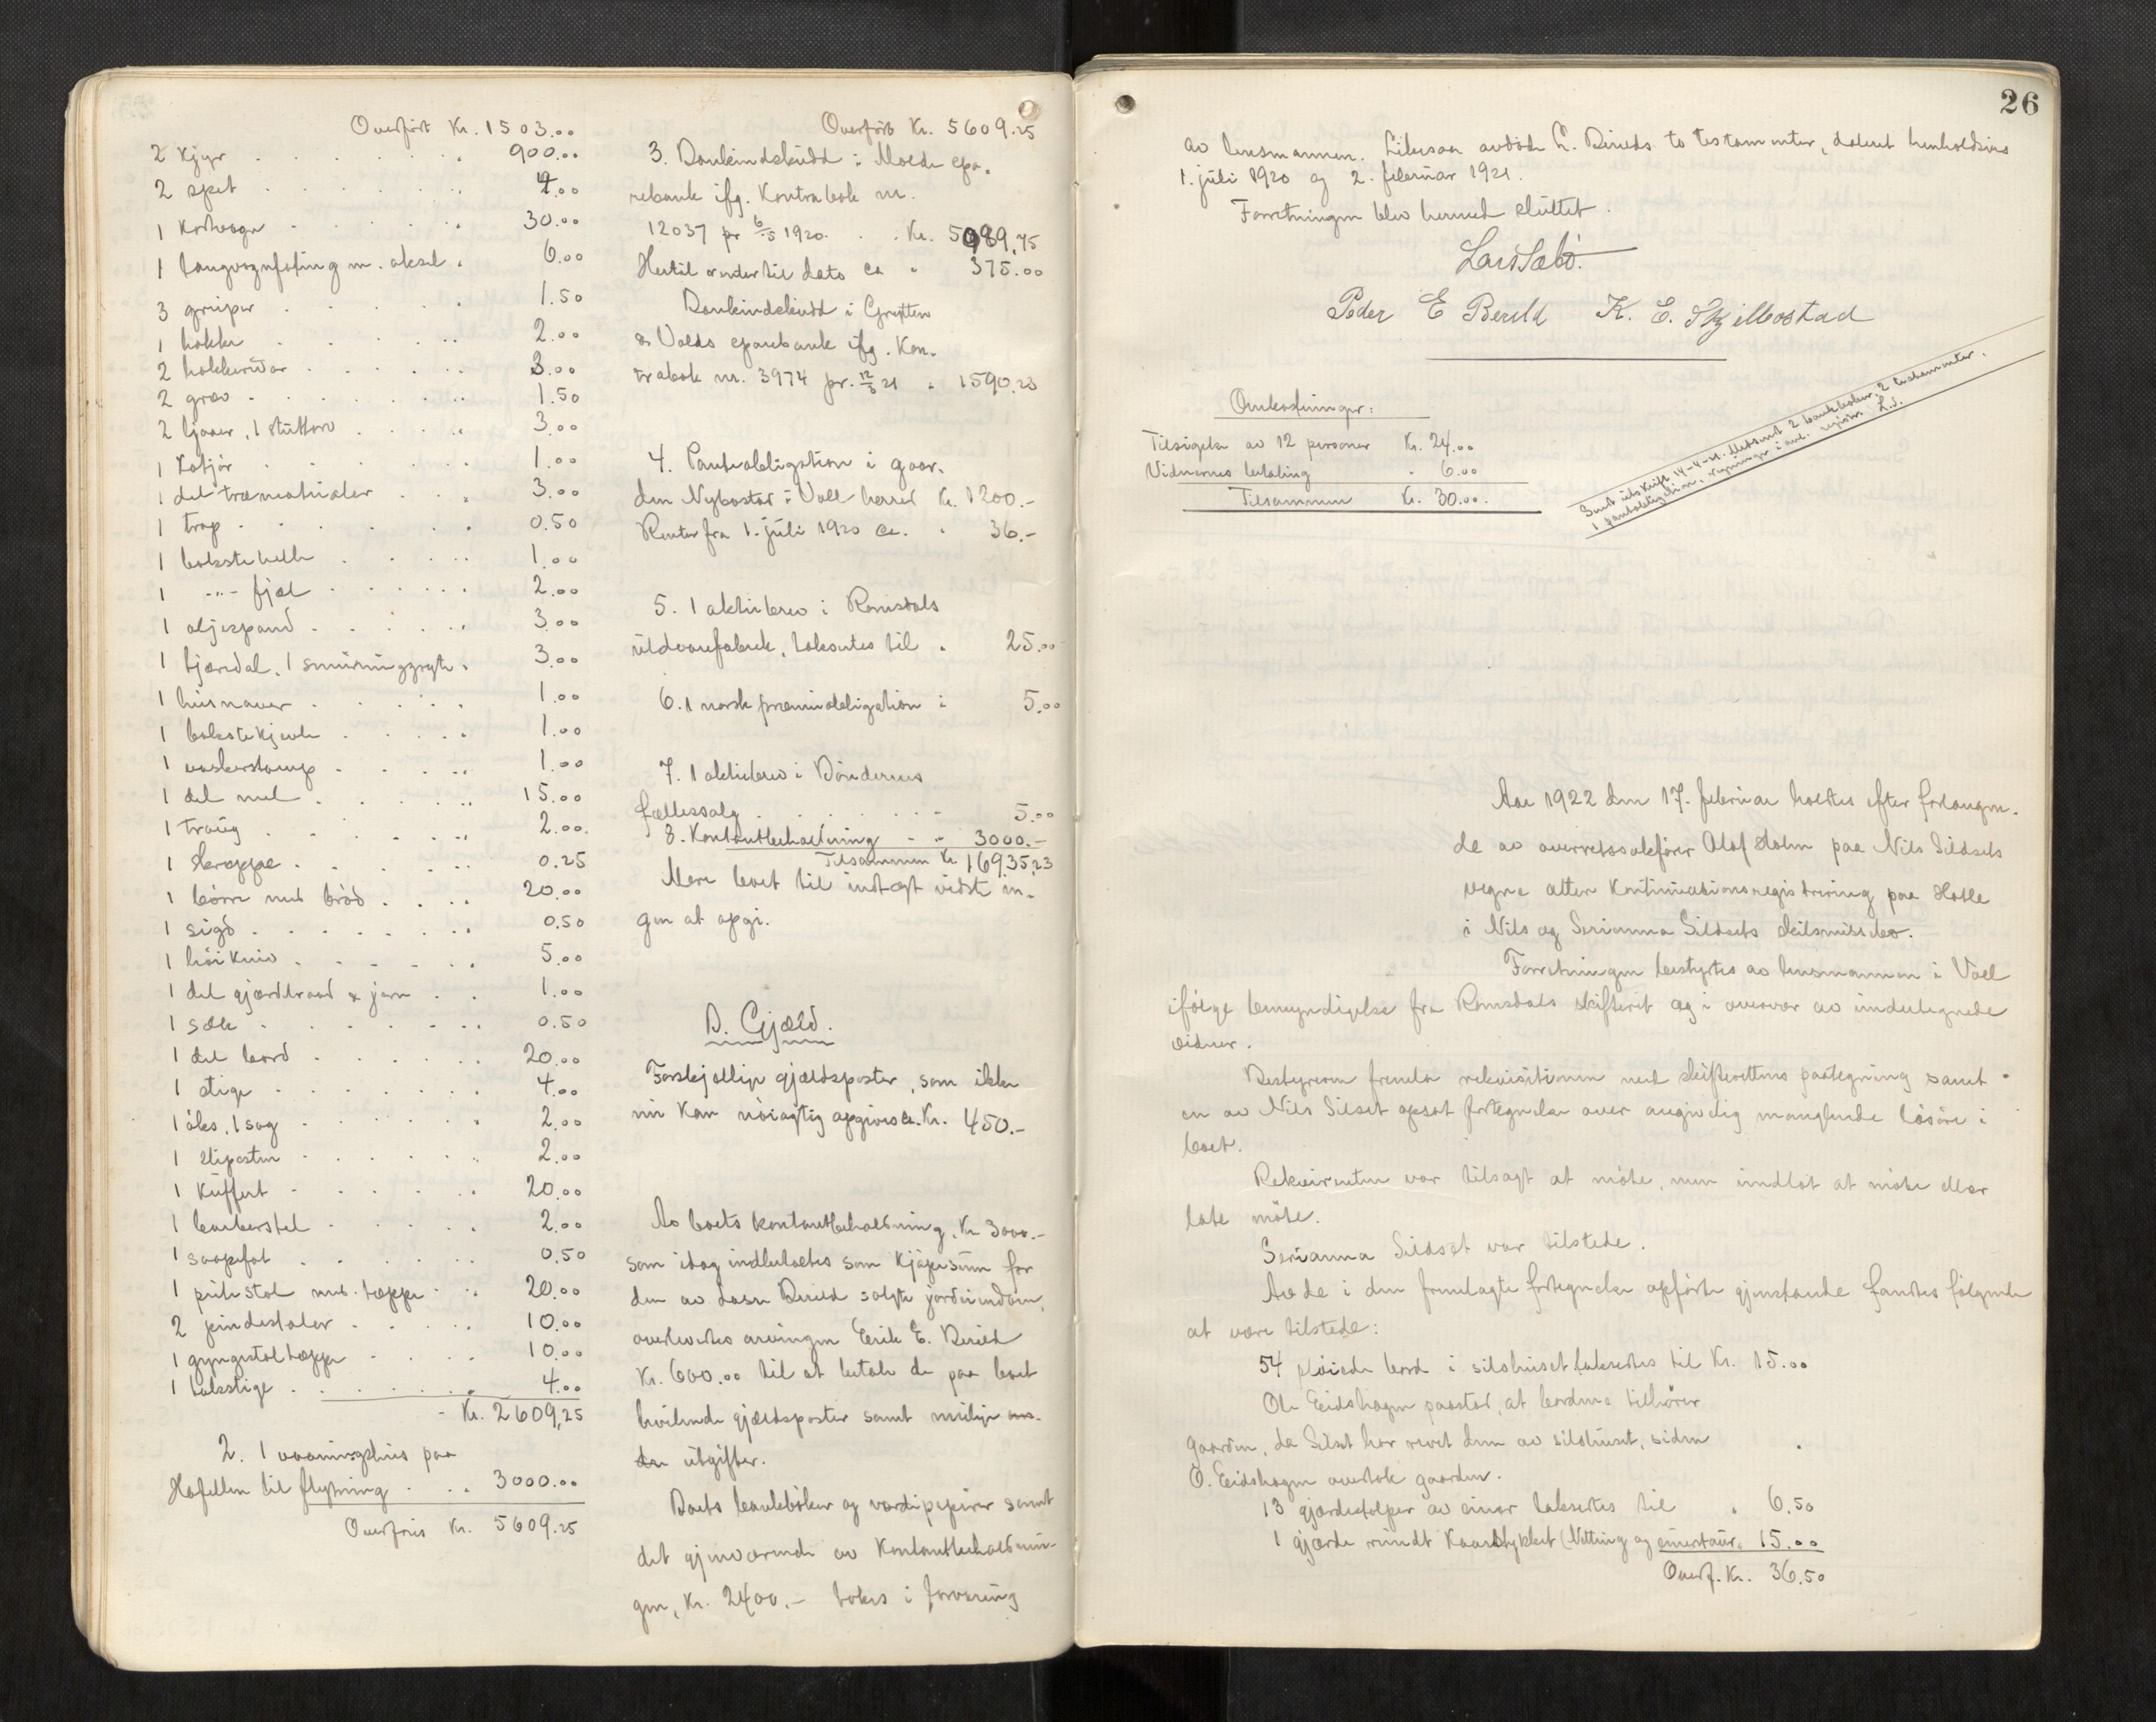 Overført Kr. 1503.00
2 kjyr . . . . . . 900.00
2 spet . . . . . . 4.00
1 kothogn . . . . . 30.00
1 m. aksel . 6.00
3 greiper . . . . . 1.50
1 hakke . . . . . 2.00
2 hakker . . . . . 3.00
2 grev . . . . . . 1.50
2 ljaaer, 1 stuttorv . . . . 3.00
1 . . . . . . 1.00
1 del træmaterialer . . . 3.00
1 trap . . . . . . 0.50
1 bakstehelle . . . . 1.00
1 -"- fjøl . . . . . 2.00
1 oljespand . . . . . 3.00
1 tjæredal, 1 3.00
1 husnaver . . . . . 1.00
1 bakstekjevle . . . . 1.00
1 vaskerstamp . . . . 1.00
1 del mel . . . . . 15.00
1 traug . . . . . . 2.00
1 skrappe . . . . . 0.25
1 børre med brød . . . . 20.00
1 sigd . . . . . . 0.50
1 høikniv . . . . . . 5.00
1 del gjærdetraad & jern . . 1.00
1 sæle . . . . . . 0.50
1 del bord . . . . . 20.00
1 stige . . . . . . 4.00
1 øks, 1 sag . . . . . 2.00
1 slipesten . . . . . 2.00
1 kuffert . . . . . 20.00
1 barberstel . . . . . 2.00
1 saapefat . . . . . 0.50
1 pitestol med teppe . . 20.00
2 pindestoler . . . . . 10.00
1 gyngestolteppe . . . . 10.00
1 takstige . . . . . 4.00
- Kr. 2609,25
2. 1 vaaningshus paa
Hafellen til flytning . . . 3000.00
Overføres Kr. 5609.25
Overført Kr. 5609.25
3. Bankindskudd i Molde spa-
rebank ifg. Kontrabok nr.
12037 pr 6/5 1920. . . Kr. 5089,75
Hertil renter til dato ca . 375.00
Bankindskudd i Grytten
& Volds sparebank ifg. Kon-
trabok nr. 3974 pr. 12/3 21 . 1590.23
4. Pantobligation i gaar-
den Nybostad i Voll herred Kr. 1200.-
Renter fra 1. juli 1920 ca. . 36.-
5. 1 aktiebrev i Romsdals
uldvarefabrik, takseres til . 25.00
6. 1 norsk præmieobligation : 5.00
7. 1 aktiebrev i Bøndernes
fællessalg . . . . . . 5.00
8. Kontantbeholdning - . . 3000.-
Tilsammen Kr 16935,23
Mere boet til indtægt vidste in-
gen at opgi.
B. Gjæld.
Forskjellige gjældsposter, som ikke
nu kan nøiagtig opgives ca. Kr. 450.-
Av boets kontantbeholdning, Kr 3000.-
som idag indbetaltes som kjøpesum for
den av Lasse Bereld solgte jordeiendom,
overlevertes arvingen Erik E. Bereld
Kr. 600.00 til at betale de paa boet
hvilende gjældsposter samt mulige an-
dre utgifter.
Boets bankbøker og værdipapirer samt
det gjenværende av kontantbeholdnin-
gen, Kr. 2400.- tokes i forvaring
26
av lensmannen. Likesaa avdøde L. Berelds to testamenter, datert henholdsvis
1. juli 1920 og 2. februar 1921.
Forretningen blev hermed sluttet.
Lars Sæbø.
Peder E Bereld K. E. Skjelbostad
Omkostninger:
Tilsigelse av 12 personer Kr. 24.00
Vidnernes betaling . 6.00
Tilsammen Kr. 30.00.
Sendt utskrift 14-4-21. Medsendt 2 bankbøker, 2 testamenter,
1 pantobligation, regninger i anl. registr. L.S.
Aar 1922 den 17. februar holdtes efter forlangen-
de av overretssakfører Olaf Holm paa Nils Sildsets
vegne atter kontinuationsregistrering paa Holle
i Nils og Serianna Sildsets skilsmissebo.
Forretningen bestyrtes av lensmannen i Voll
ifølge bemyndigelse fra Romsdals skifteret og i overvær av undertegnede
vidner.
Bestyreren fremla rekvisitionen med skifterettens paategning samt
en av Nils Silset opsat fortegnelse over angivelig manglende løsøre i
boet.
Rekvirenten var tilsagt at møte, men undlot at møte eller
late møte.
Serianna Sildset var tilstede.
Av de i den fremlagte fortegnelse opførte gjenstande fandtes følgende
at være tilstede:
54 pløiede bord i silohuset taksertes til Kr. 15.00
Ole Eidshagen paastod, at bordene tilhører
gaarden, da Silset har revet dem av silohuset, siden
O. Eidshagen overtok gaarden.
13 gjærdestolper av einer taksertes til . 6.50
1 gjærde rundt (Netting og einerstaur. 15.00
Overf. Kr. 36.50